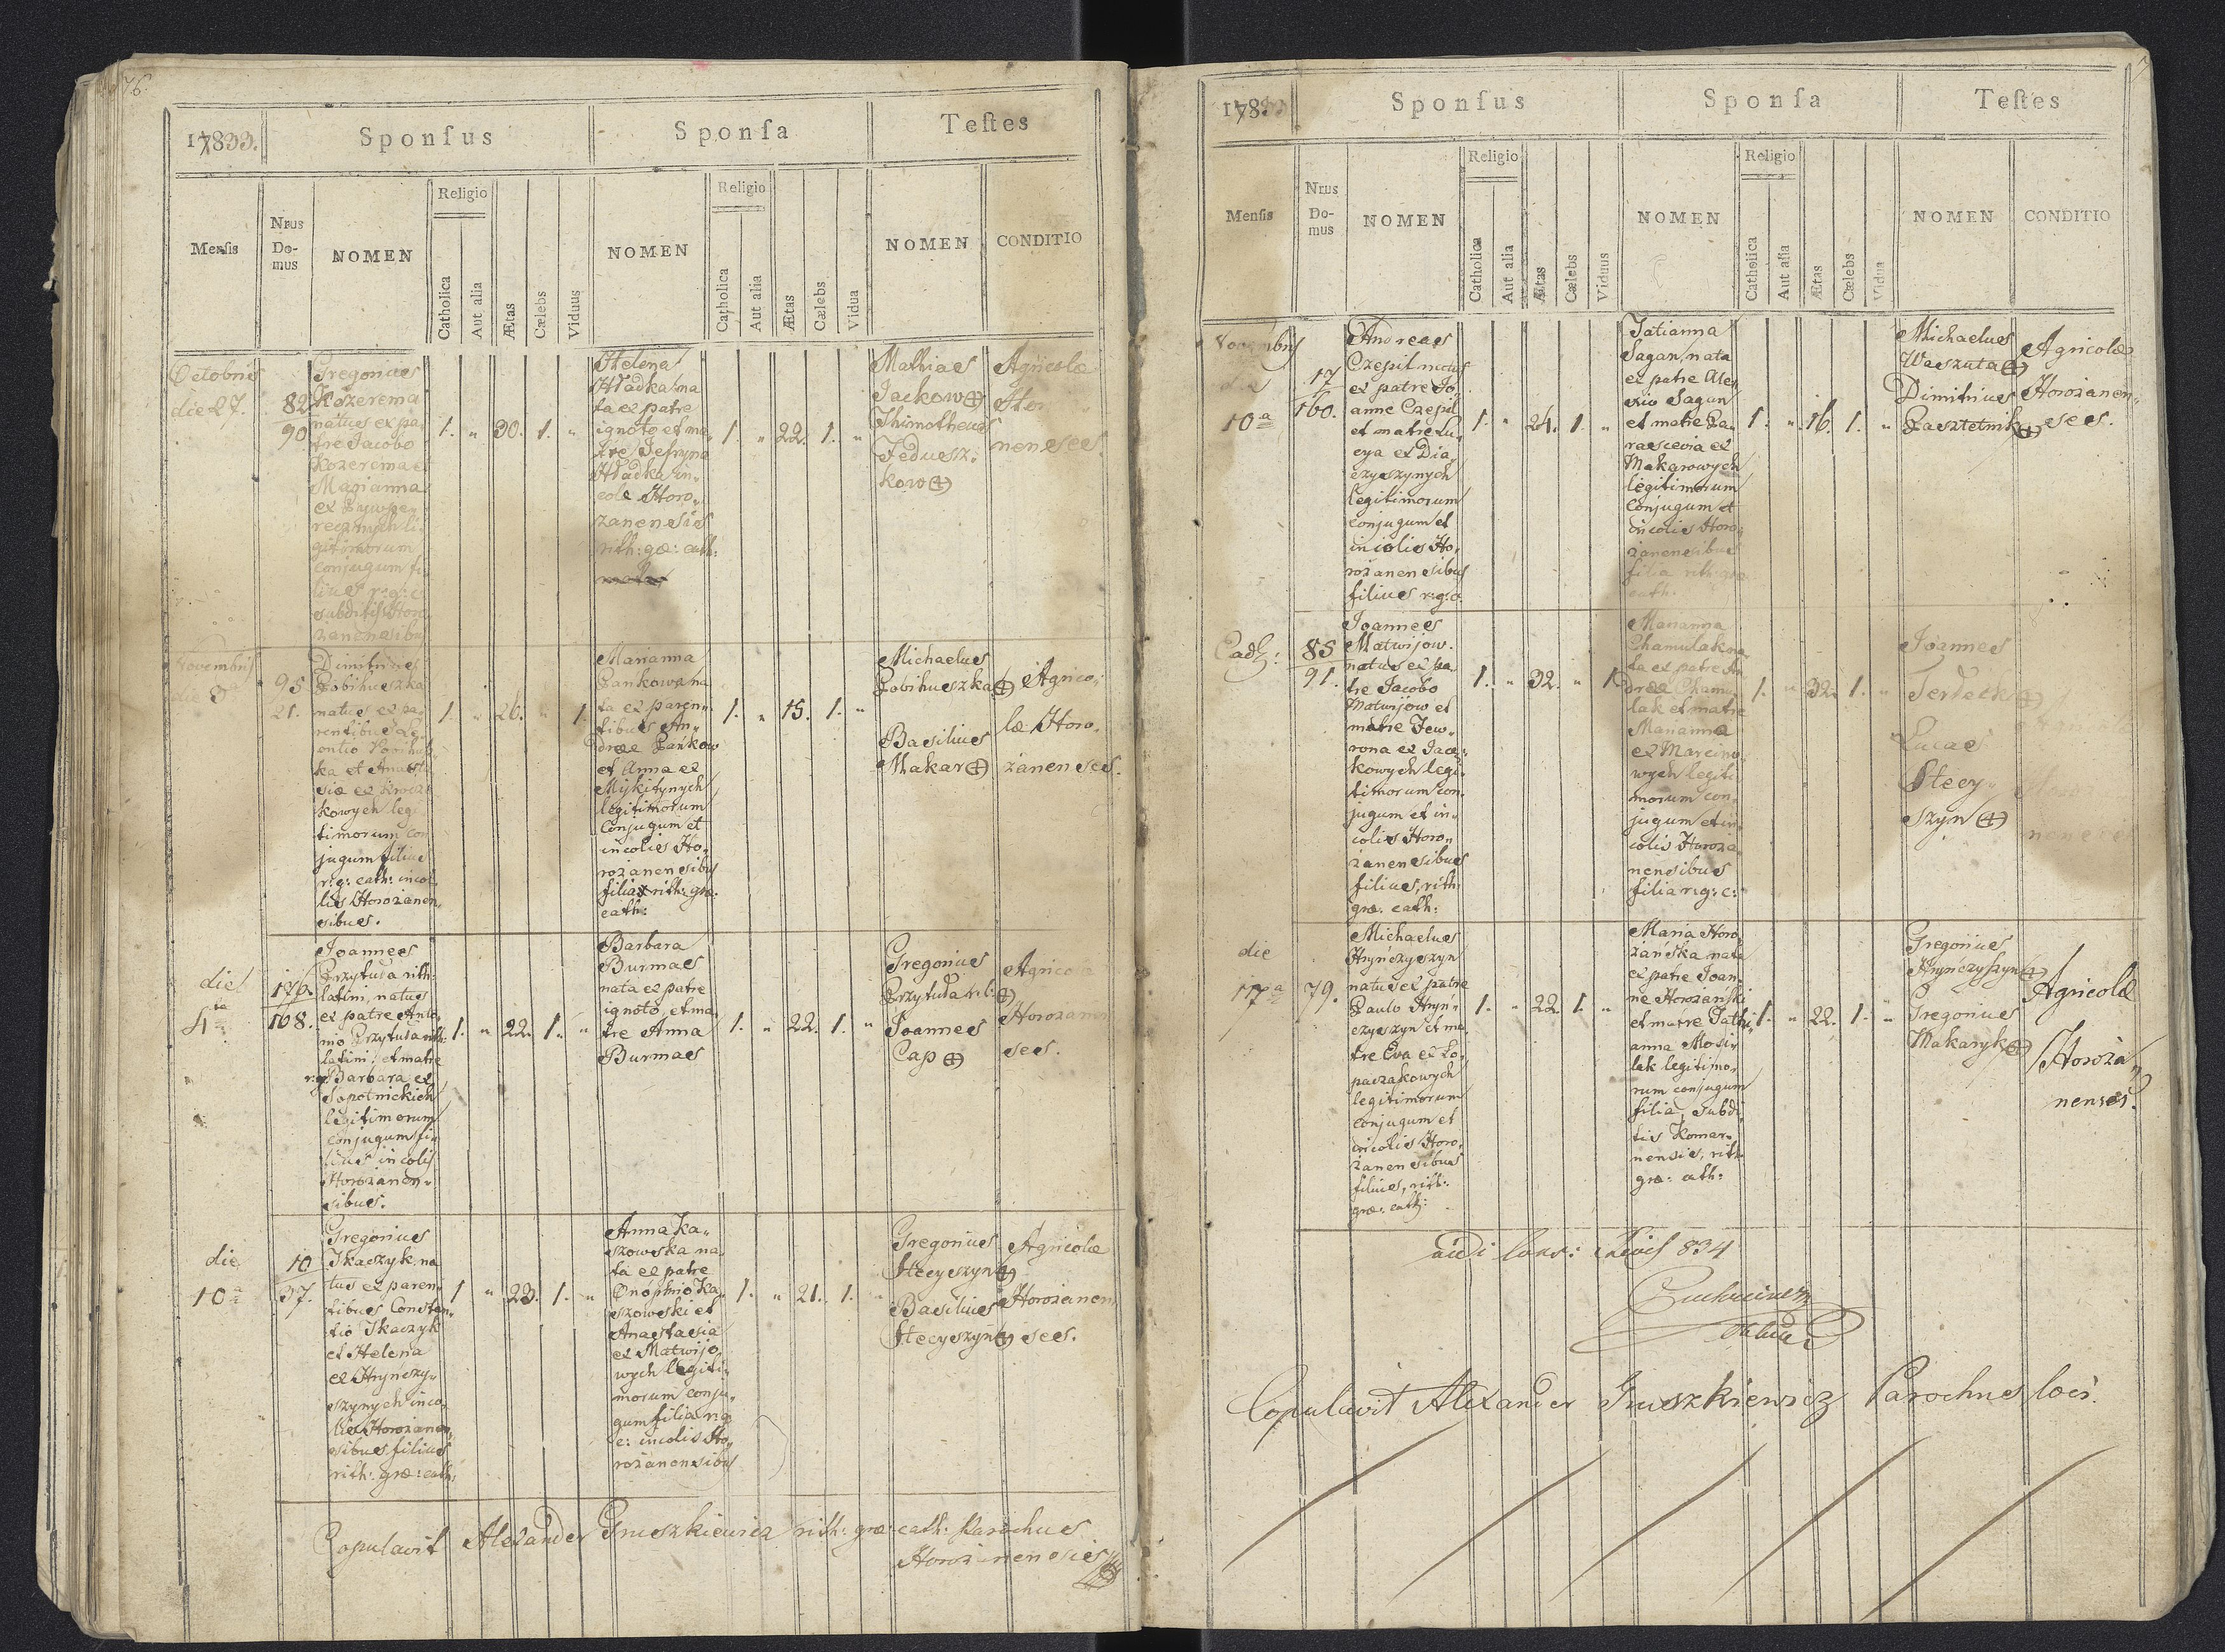 76.
17833.
Sponſus
Sponſa
Teſtes
Menſis
Nrus
Do-
mus
NOMEN
Religio
Catholica
Aut alia
Ætas
Cælebs
Viduus
NOMEN
Religio
Catholica
Aut alia
Ætas
Cælebs
Vidua
NOMEN
CONDITIO
Octobris
die 27.
82
90.
Gregorius
Kozerema
natus ex pa,
tre Jacobo
Kozerema et
Marianna
ex
li,
gitimorum
conjugum fi,
lius r: g: c:
subditis Horo
zanensibus
1. " 30. 1. "
Helena
Hładka na
ta ex patre
ignoto et ma,
tre
Hładka in,
cole Horo,
zanensis
rith: gæ: cath:
1. " 22. 1. "
Mathias
Jackow
Thimotheus
Fedusz,
kow
Agricolæ
Horo
nenses.
Novembris
die 3
95
21.
Dimitrius
Pobihuszka
natus ex pa,
rentibus Le,
ontio Pobihusz
ka et Anasta
sia ex
kowych legi
timorum con
jugum filius
r: g: cath: incol,
lis Horożanen,
sibus.
1. " 26. " 1.
Marianna
Pankowa na
ta ex paren,
tibus An,
dreæ Pańkow
et Anna ex
Mykitynych
legitimorum
Conjugum et
incolis Ho,
rożanensibus
filia rith: græ:
cath:
1. " 15. 1. "
Michaelus
Pobihuszka
Basilius
Makar
Agrico,
læ Horo,
żanenses.
die
4ta
126.
168.
Joannes
Przytuła rith:
latini, natus
ex patre Anto,
nio Przytuła rith:
latini; et matre
r: g: Barbara ex
Sopotnickich
legitimorum
conjugum fi,
lius incolis
Horożanen,
sibus.
1. " 22. 1. "
Barbara
Burmas
nata ex patre
ignoto, et ma,
tre Anna
Burmas
1. " 22. 1. "
Gregorius
Przytuła r. l.
Joannes
Cap
Agricolæ
Horozanen
ses.
die
10a
10
37.
Gregorius
Tkaczyk na
tus ex paren,
tibus Constan,
tio Tkaczyk
et Helena
ex Hryńczy,
szynych inco,
lis Horożanen,
sibus filius
rith: græ: cath:
1 " 23. 1. "
Anna Ka,
szowska na
ta ex patre
Onophrio Ka,
szowski et
Anastasia
ex Matwijo
wych legiti,
morum conju,
gum filia r: g:
c: incolis Ho,
rożanensibus
1. " 21. 1.
Gregorius
Stecyszyn
Basilius
Stecyszyn
Agricolæ
Horożanen
ses.
Copulavit Alexander Gruszkiewicz rith: græ: cath: Parochus
Horożanensis
178
Sponſus
Sponſa
Teſtes
Menſis
Nrus
Do-
mus
NOMEN
Religio
Catholica
Aut alia
Ætas
Cælebs
Viduus
NOMEN
Religio
Catholica
Aut alia
Ætas
Cælebs
Vidua
NOMEN
CONDITIO
Novembris
die
10a
17
160.
Andreas
Czepil natus
ex patre Jo,
anne Czepil
et matre Lu,
cya ex Dia,
czyszynych
legitimorum
conjugum et
incolis Ho,
rożanensibus
filius r: g: c:
1. " 24. 1. "
Tatianna
Sagan, nata
ex patre Ale,
xio Sagan
et matre Pa,
rascevia ex
Makarowych
legitimorum
Conjugum et
incolis Horo,
żanensibus
filia rith: græ
cath:
1. " 16. 1. "
Michaelus
Waszuta
Dimitrius
Pasztetnik
Agricolæ
Horożanen,
ses.
Eadē:
85
91.
Joannes
Matwijow.
natus ex pa
tre Jacobo
Matwijow et
matre Jew,
rona ex Jac,
kowych legi,
timorum con,
jugum et in,
colis Horo,
żanensibus
filius, rith:
græ: cath:
1. " 32. " 1.
Marianna
Chamulak na
ta ex patre An
dreæ Chamu,
lak et matre
Marianna
ex Marcino,
wych legiti
morum con,
jugum et in
colis Horoza
nensibus
filia r: g: c:
1. " 32. 1. "
Joannes
Terdeck
Lucas
Stecy,
szyn
die
17a
79.
Michaelus
Hryńczyszyn
natus ex patre
Paulo Hryń,
czyszyn et ma,
tre Eva ex Ło,
paczakowych
legitimorum
conjugum et
incolis Horo,
żanensibus
filius, rith:
græ: cath:
1. " 22. 1. "
Maria Horo
żańska nata
ex patre Joan,
ne Horożański
et matre Tathi,
anna Mosi,
lak legitimo,
rum conjugum
filia, subdi,
tis Komar,
nensis, rith:
græ: cath:
1. " 22. 1. "
Gregorius
Hryńczyszyn
Gregorius
Makaryk
Agricolæ
Horoża,
nenses.
834
Copulavit Alexander Gruszkiewicz Parochus loci.